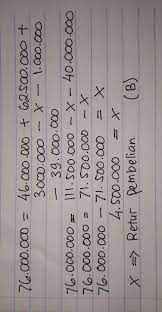 76.000.000 = 46.000.000 + 62.500.000 +
3.000.000 - x - 1.000.000
- 39.000.000
76.000.000 = 111.500.000 - x - 40.000.000
76.000.000 = 71.500.000 - x
76.000.000 - 71.500.000 = x
4.500.000 = x
x => Retur Pembelian (B)